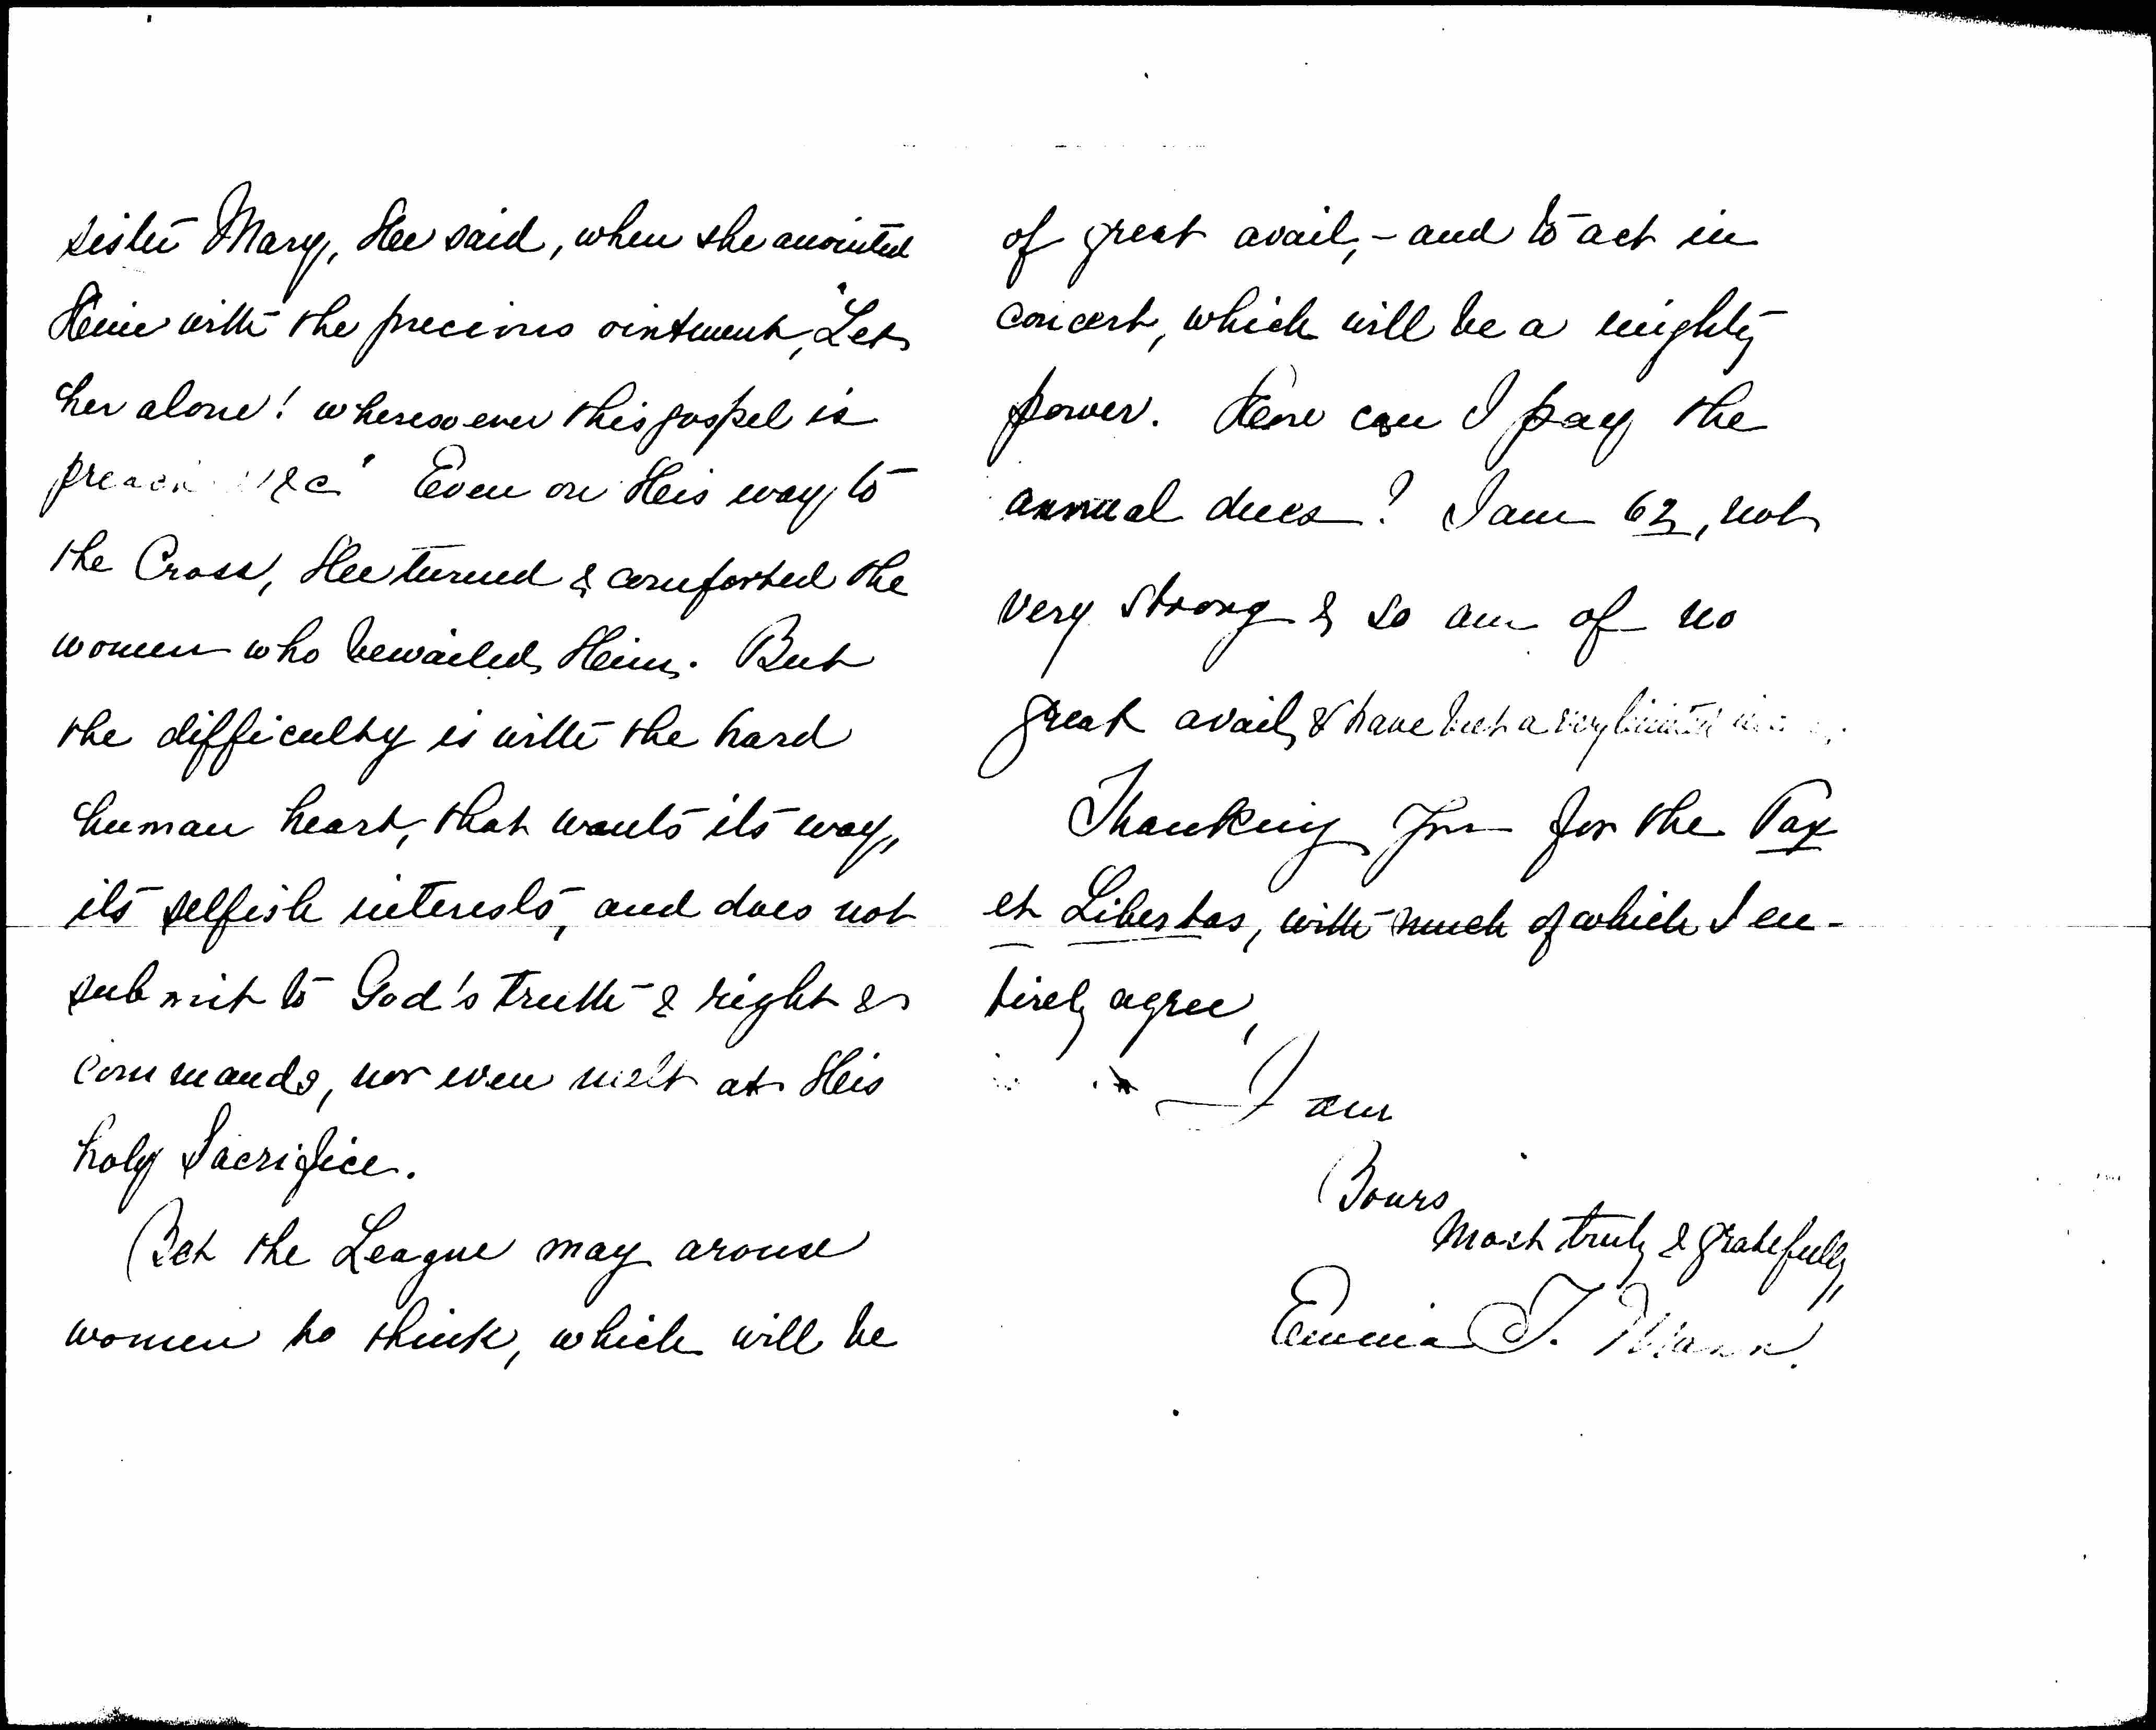 sister Mary, He said, when she anointed
Him with the precious ointment, "Let
her alone! wheresoever this gospel is
preach &c" Even on His way to
the Cross, He turned & comforted the
women who bewailed Him. But
the difficulty is with the hard
human heart, that wants its way,
its selfish interests, and does not
submit to God's truth & right &
commands, nor even melt at His
holy Sacrifice.
Yet the League may arouse
women to think, which will be
of great avail, - and to act in
concert, which will be a mighty
power. How can I pay the
annual dues? I am 62, not
very strong & so am of no
great avail, & have but a very limited
Thanking you for the Pax
et Libertas, with much of which I en-
tirely agree,
I am
Yours
Most truly & gratefully,
Emma T. Mann.